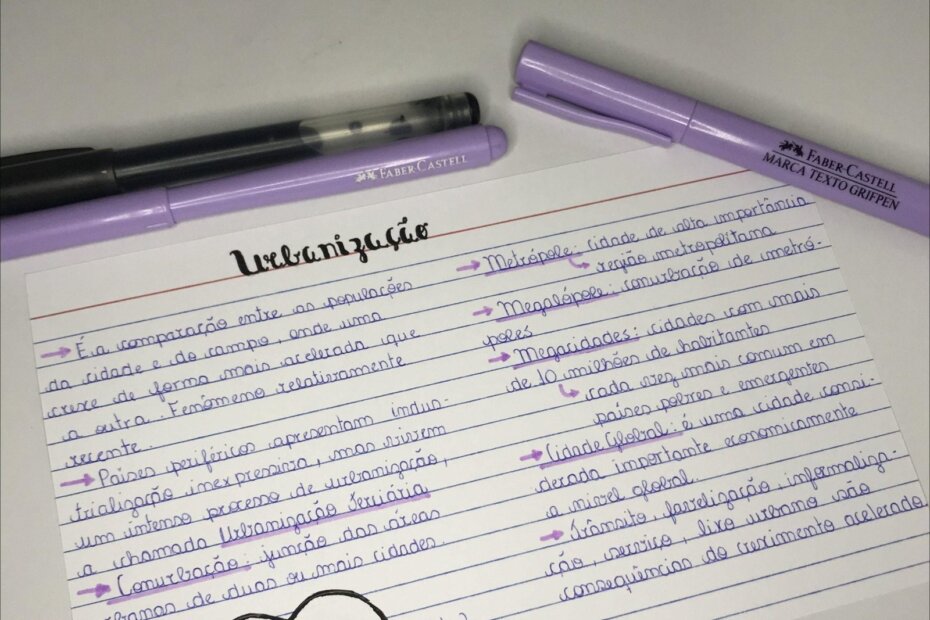 FABER CASTELL
FABER CASTELL
MARCA TEXTO GRIFPEN
Urbanização
É a comparação entre as populações
da cidade e do campo, onde uma
cresce de forma mais acelerada que
a outra. Fenômeno relativamente
recente.
Países periféricos apresentam indus-
trialização inexpressiva, mas vivem
um intenso processo de urbanização,
a chamada Urbanização Terciária
Conurbação: junção das áreas
banas de duas ou mais cidades.
Metrópole: cidade de alta importância
região metropolitana
Megalópole: conurbação de metró-
poles
Megacidades: cidades com mais
de 10 milhões de habitantes
cada vez mais comum em
países pobres e emergentes
Cidade Global: é uma cidade consi-
derada importante economicamente
a nível global.
Trânsito, favelização, informaliza-
ção, serviço, lixo urbano são
consequências do crescimento acelerado